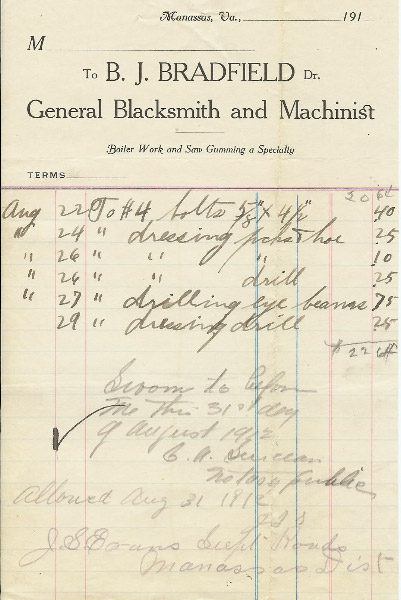 Manassas, Va., 191
M
To B. J. BRADFIELD Dr.
General Blacksmith and Machinist
Boiler Work and Saw Gumming a Specialty
TERMS
20 64
Aug 22 To #4 bolts 5/8" x 4 1/2" 40
" 24 " dressing picks & hoe 25
" 26 " " " 10
" 26 " " drill 25
" 27 " drilling eye beams 75
29 " dressing drill 25
$ 22 64
Sworn to before
me this 31st day
of August 1912
C. A. Sinclair
Notary Public
Allowed Aug 31 1912
J. S. Evans Supt Roads
Manassas Dist